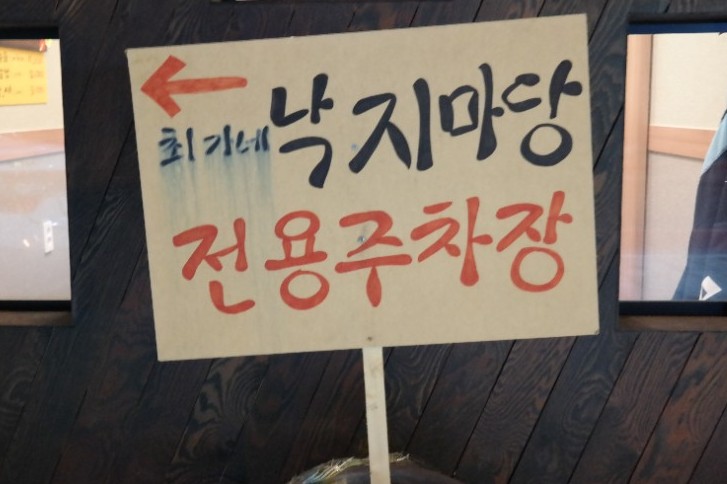 ← 최가네 낙지마당
전용주차장